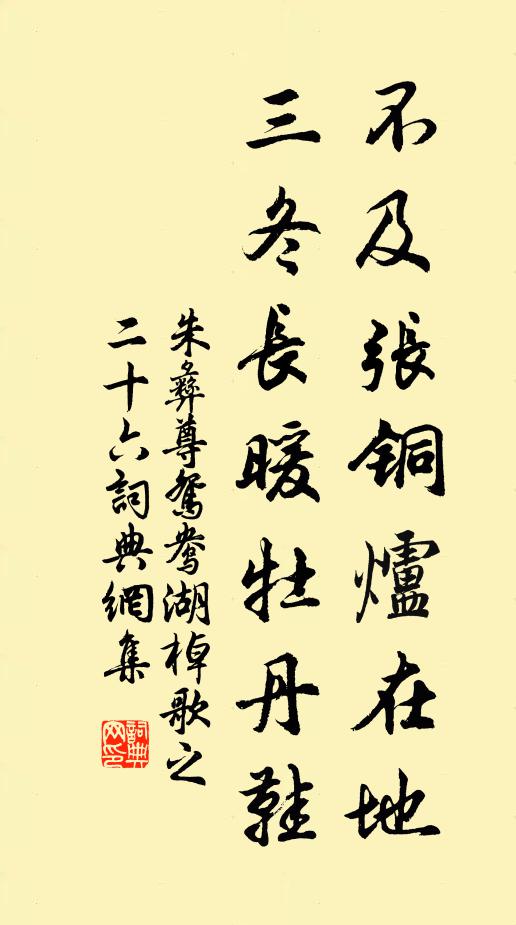 不及張銅爐在地
三冬長暖牡丹鞋
朱彝尊鴛鴦湖棹歌之
二十六詞典網集
詞典網印